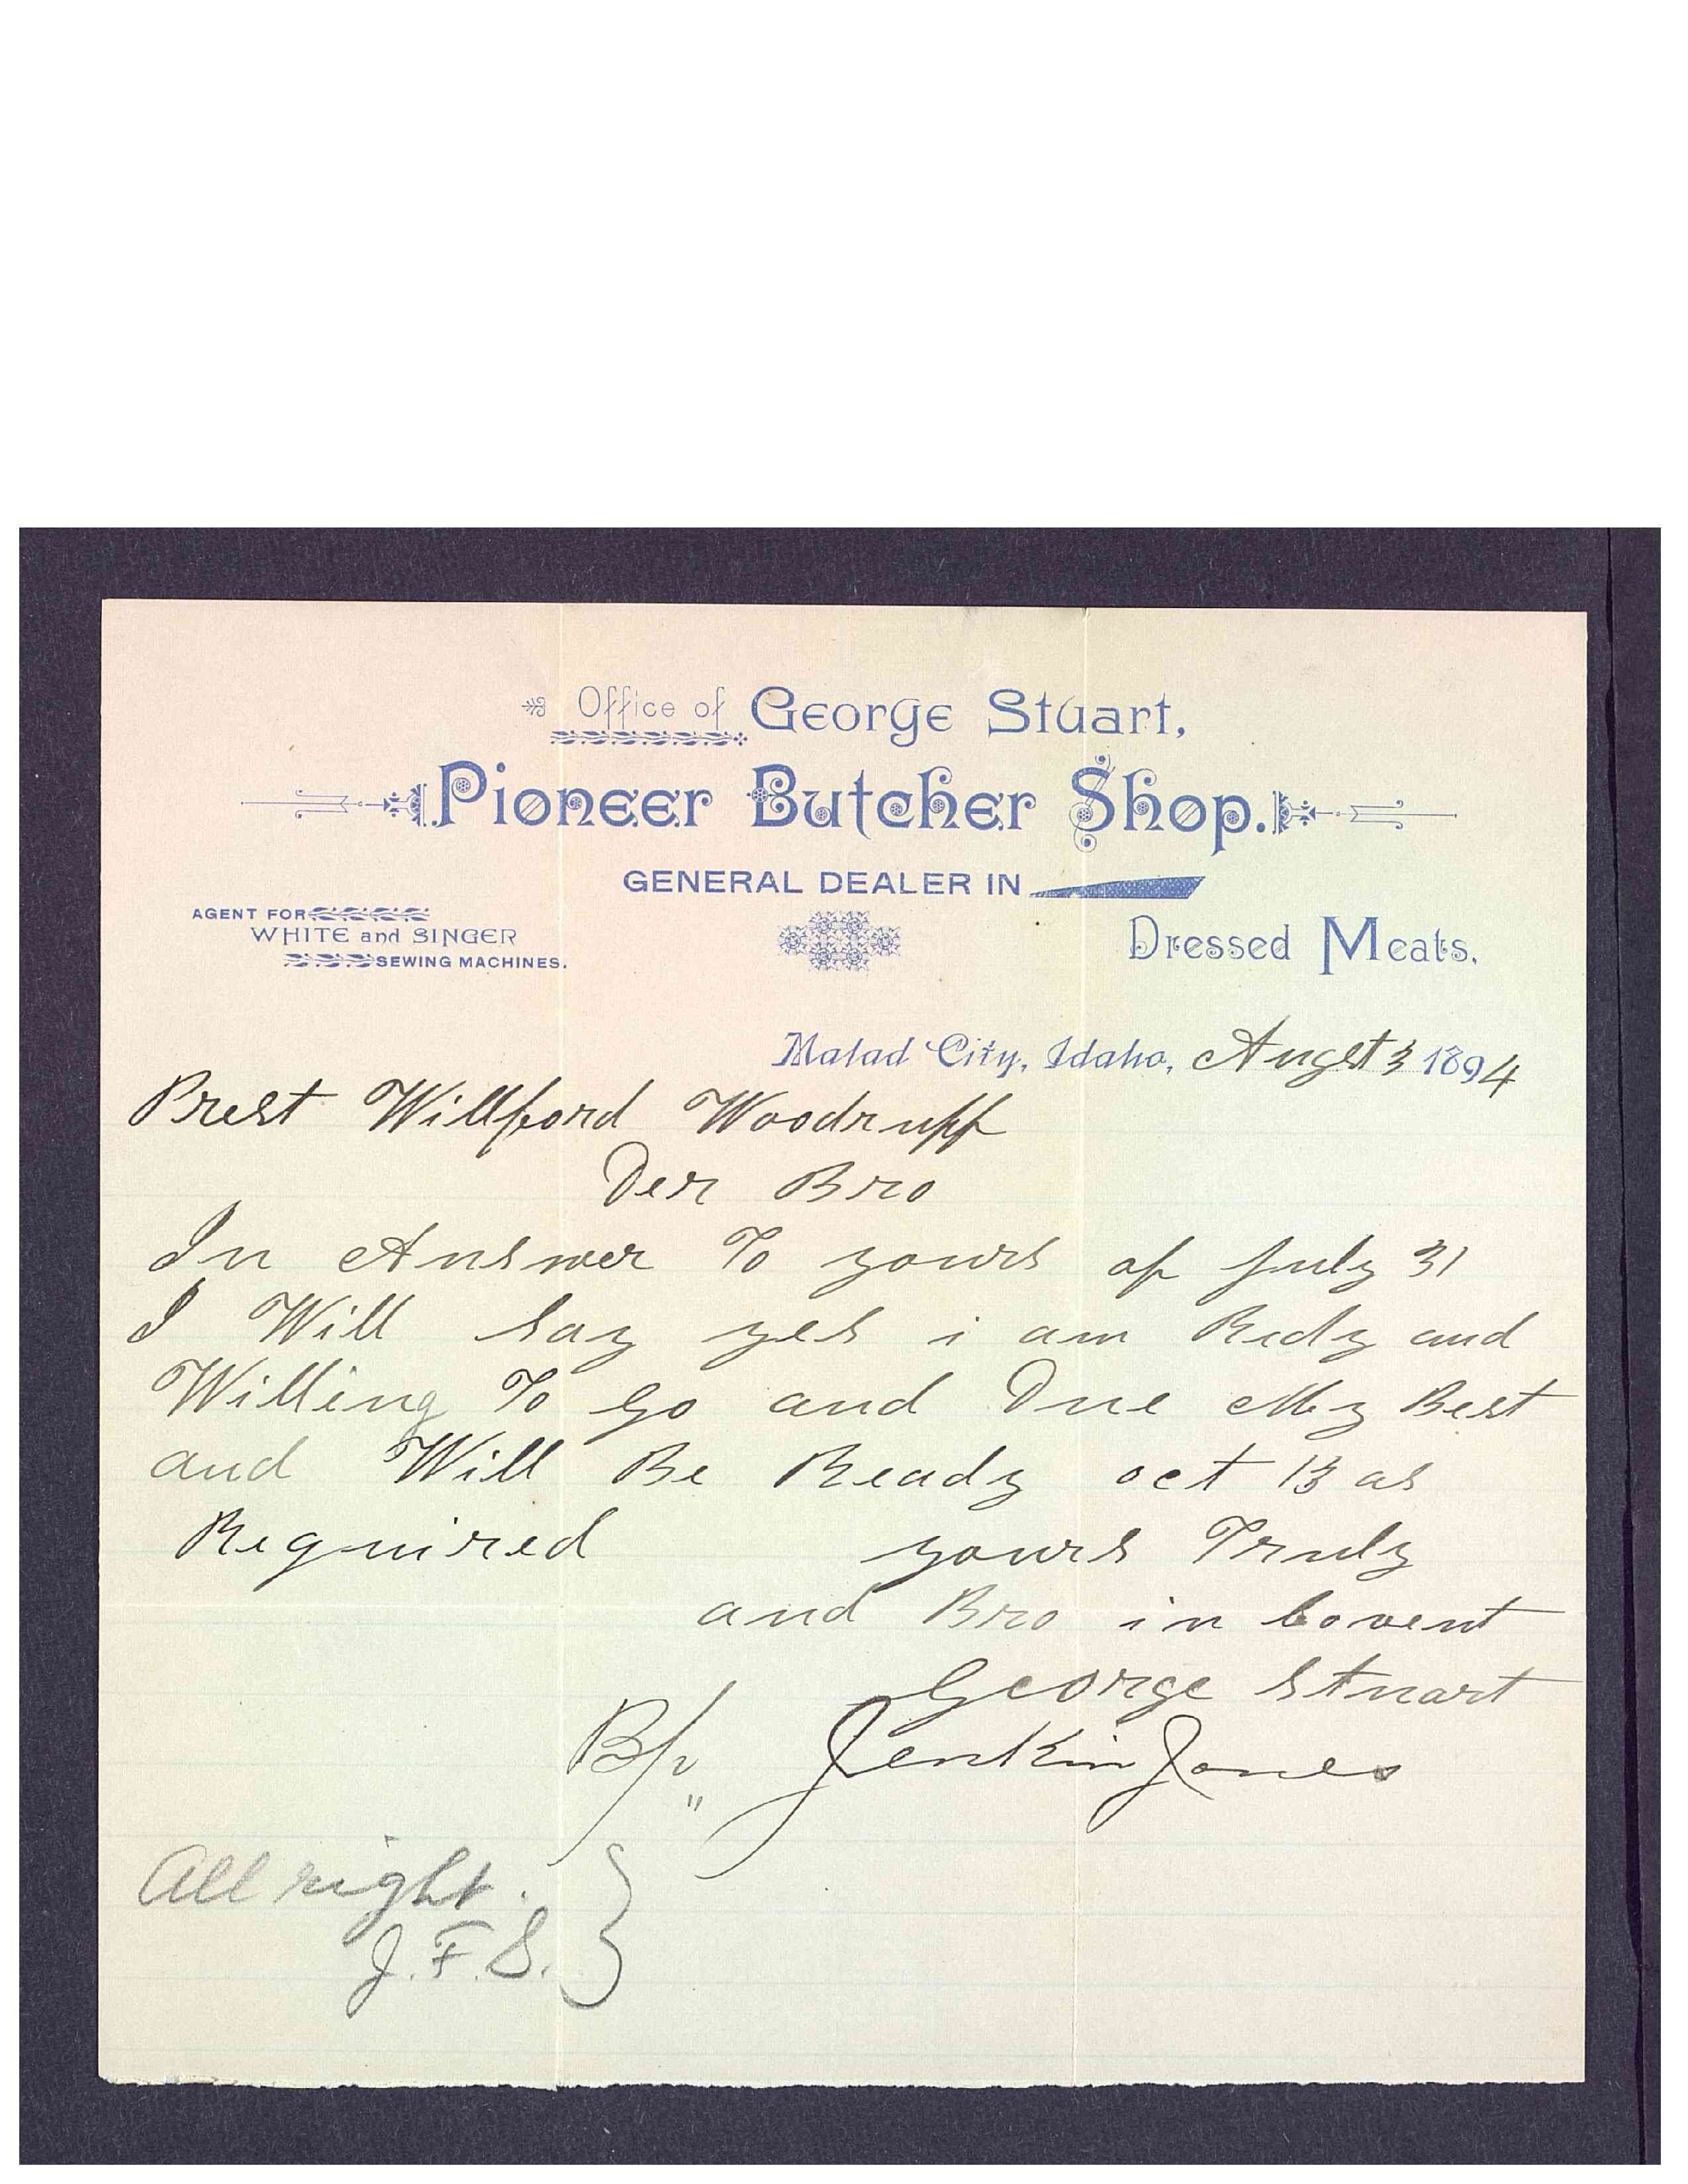 Office of George Stuart,
Pioneer Butcher Shop.
GENERAL DEALER IN
AGENT FOR
WHITE and SINGER
SEWING MACHINES.
Dressed Meats.
Malad City, Idaho, Augst 3 1894
Prest Willford Woodruff
Der Bro
In Answer To yours of July 31
I Will say yes i am Redy and
Willing To go and Due My Best
and Will Be Ready oct 13 as
Required yours Truly
and Bro in Covent
George Stuart
Bp Jenkin Jones
"
All right.
J.F.S.